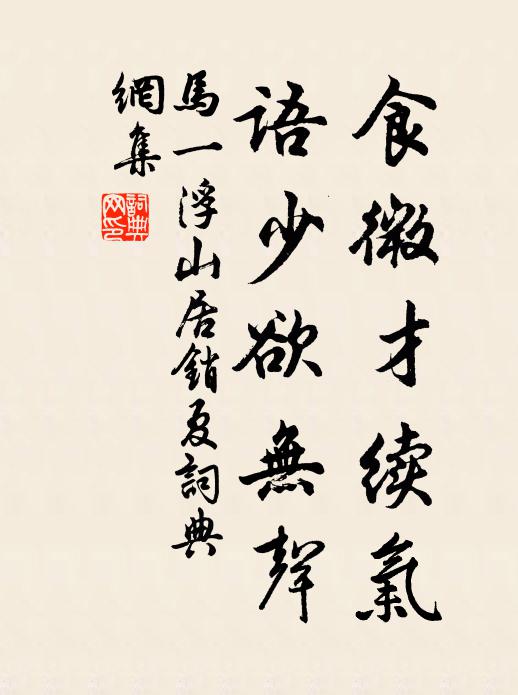 食微才续氣
語少欲無聲
馬一浮山居銷夏詞典
網集
詞典
网印